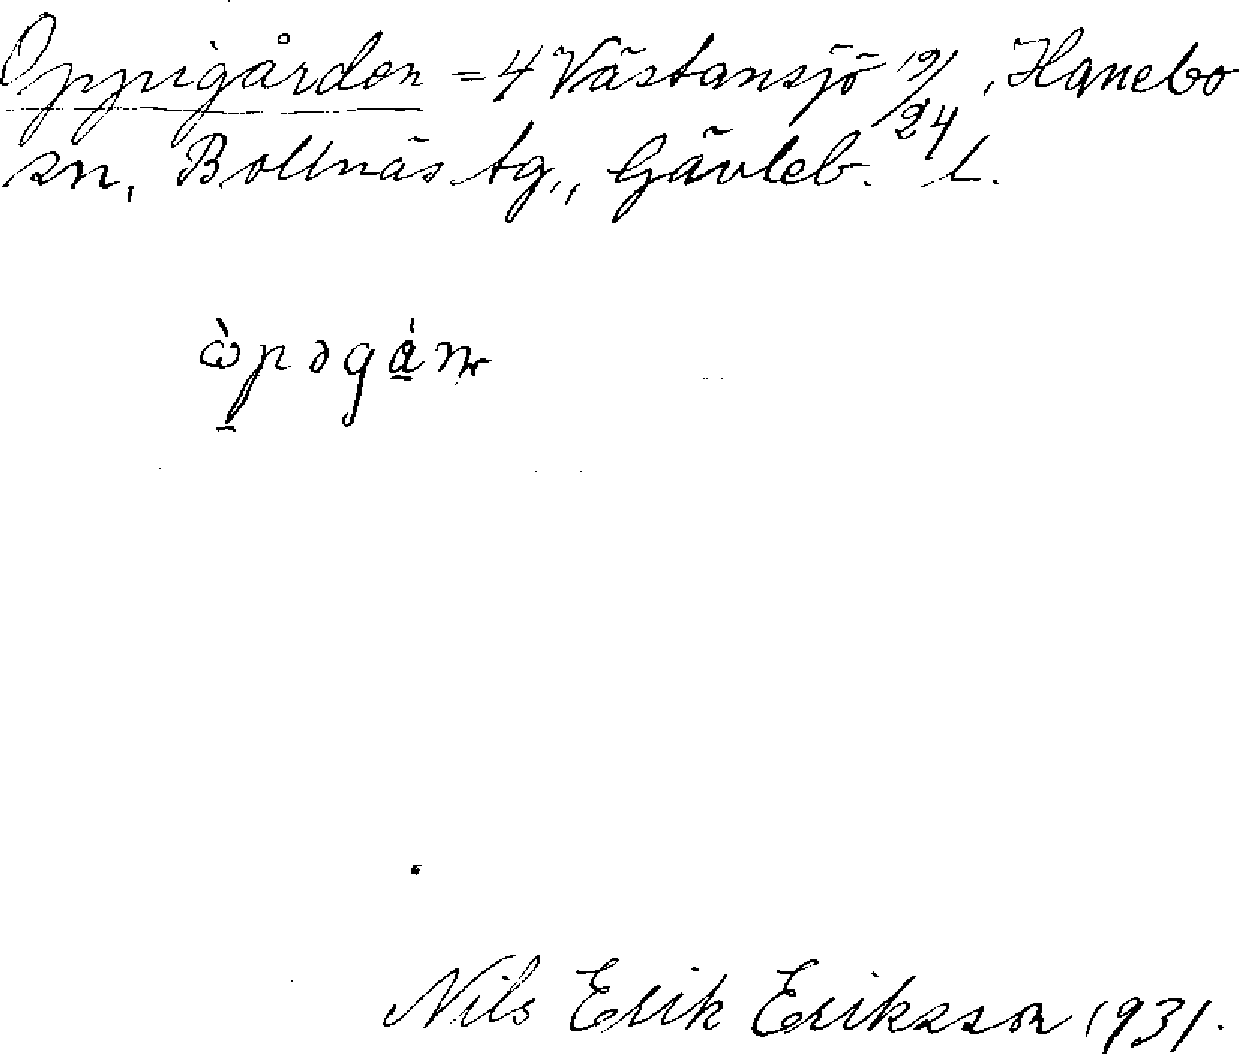 Oppigården = 4 Västansjö 19/24, Hanebo
sn, Bollnäs tg., Gävleb. l.
Nils Erik Eriksson 1931.